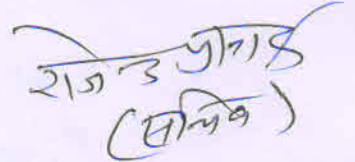 राजेन्द्र प्रसाद
(सचिव)